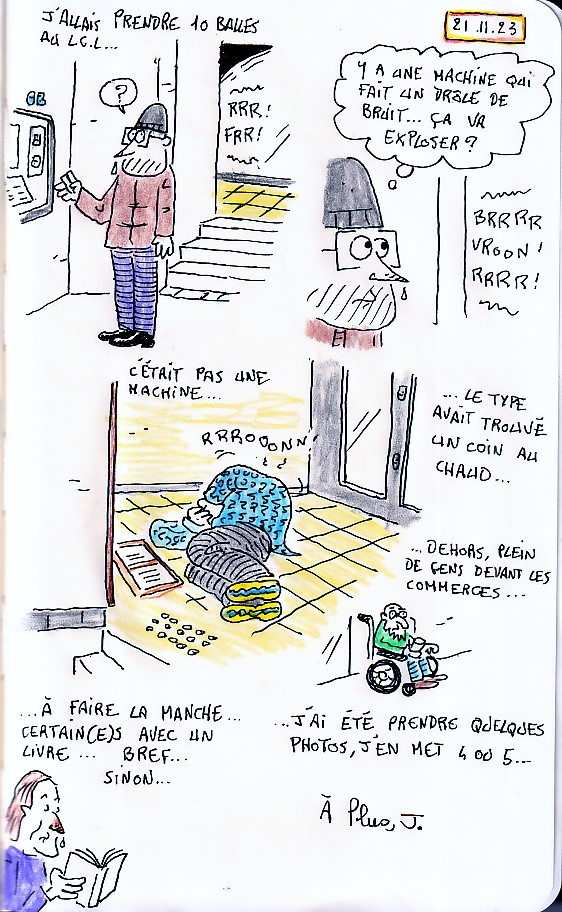 J'ALLAIS PRENDRE 10 BALLES
AU L.C.L...
21.11.23
?
RRR!
FRR!
Y A UNE MACHINE QUI
FAIT UN DRÔLE DE
BRUIT... ÇA VA
EXPLOSER?
BRRRR
VROON!
RRRR!
C'ÉTAIT PAS UNE
MACHINE...
RRROOONN!
...LE TYPE
AVAIT TROUVÉ
UN COIN AU
CHAUD...
...DEHORS, PLEIN
DE GENS DEVANT LES
COMMERCES...
...À FAIRE LA MANCHE...
CERTAIN(E)S AVEC UN
LIVRE... BREF...
SINON...
...J'AI ÉTÉ PRENDRE QUELQUES
PHOTOS, J'EN MET 4 OU 5...
À Plus, J.